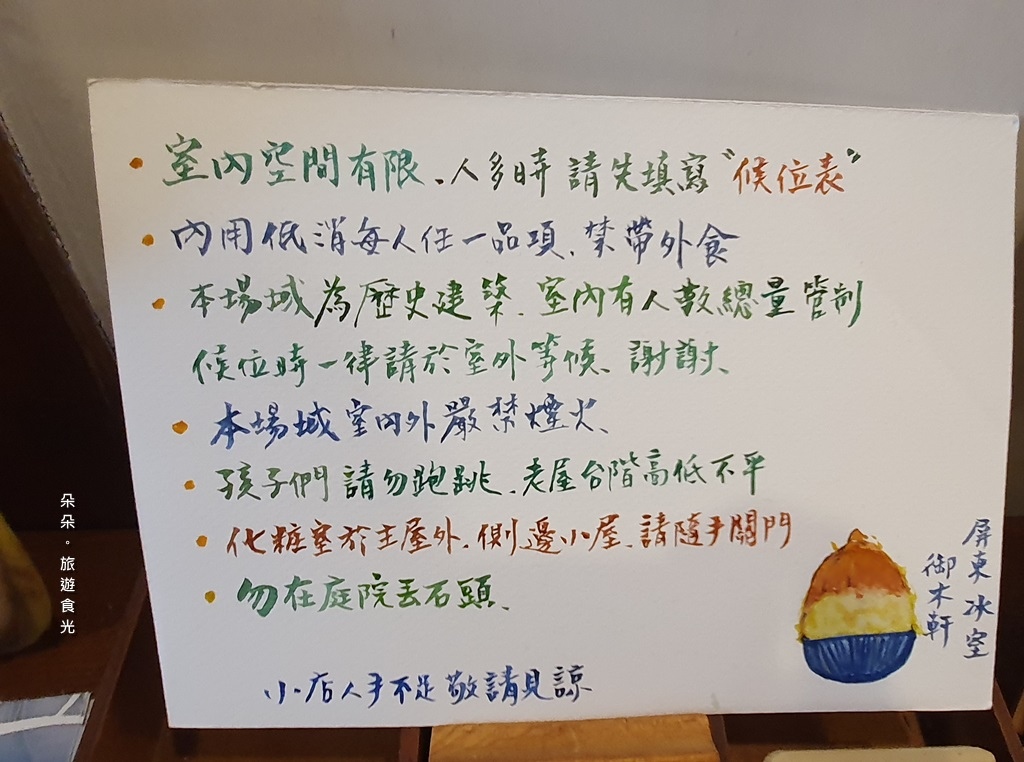 • 室內空間有限、人多時請先填寫"候位表"
• 內用低消每人任一品項、禁帶外食
• 本場域為歷史建築、室內有人數總量管制
候位時一律請於室外等候、謝謝、
• 本場域室內外嚴禁煙火、
• 孩子們請勿跑跳、老屋台階高低不平
• 化粧室於主屋外、側邊小屋、請隨手關門
• 勿在庭院丟石頭、
小店人手不足敬請見諒
屏東冰室
御木軒
朵朵。旅遊食光